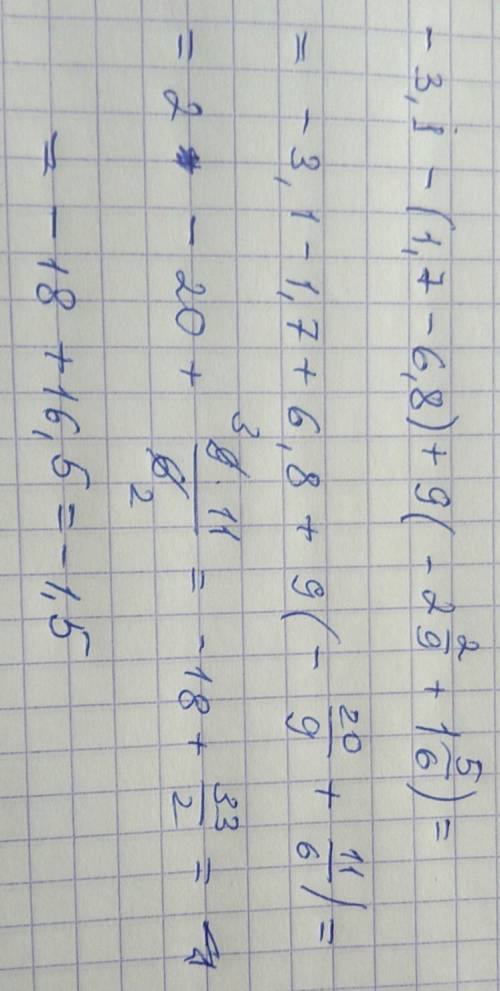 - 3,1 - (1,7 - 6,8) + 9(- 2 2/9 + 1 5/6) =
= - 3,1 - 1,7 + 6,8 + 9(- 20/9 + 11/6) =
= 2 - 20 + 3 9·11/6 2 = - 18 + 33/2 =
= - 18 + 16,5 = - 1,5